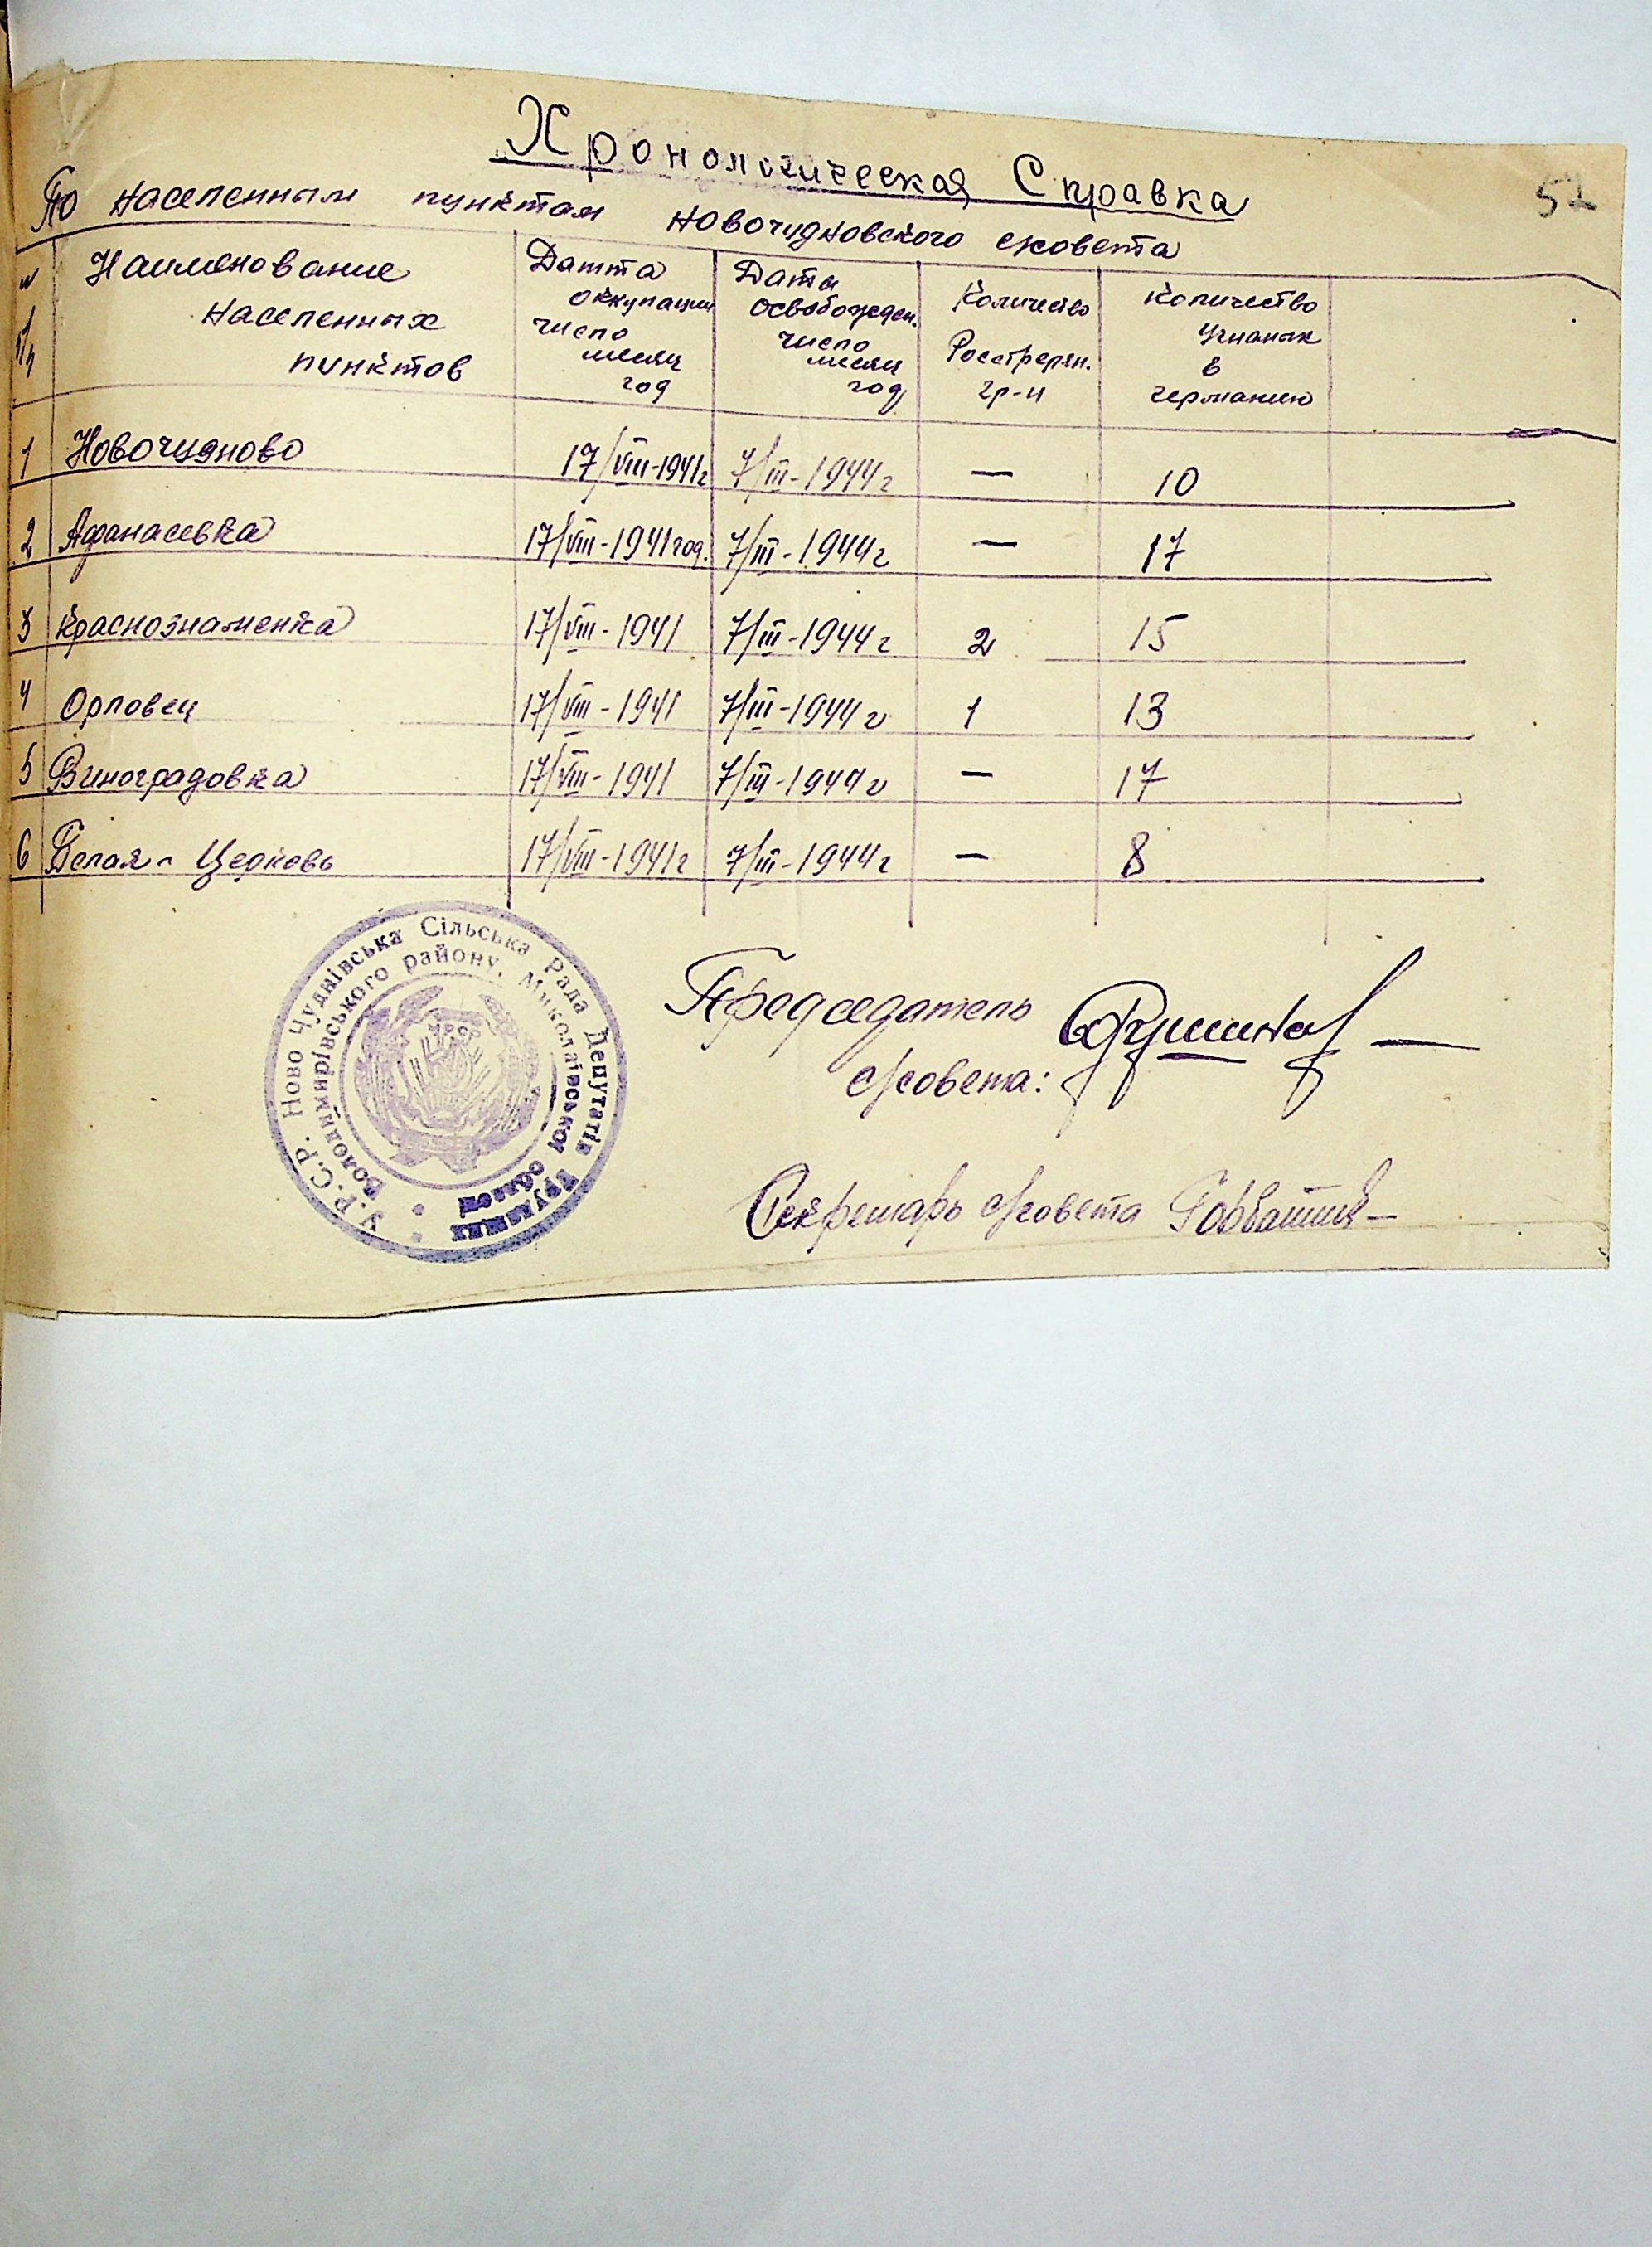 52
Хронологическая Справка
По населенным пунктам Новочудновского сковета
№ п/п
Наименование населенных пунктов
Датта оккупации число месяц год
Даты освобожден. число месяц год
Количество Росстрелян. гр-н
Количество угнаных в германию
1 Новочудново 17/VIII-1941г 7/III-1944г — 10
2 Афанасевка 17/VIII-1941год. 7/III-1944г — 17
3 Краснознаменка 17/VIII-1941 7/III-1944г 2 15
4 Орловец 17/VIII-1941 7/III-1944г 1 13
5 Виноградовка 17/VIII-1941 7/III-1944г — 17
6 Белая-Церковь 17/VIII-1941г 7/III-1944г — 8
Председатель
с/совета:
Секретарь с/совета
У.Р.С.Р. Ново Чуднівська Сільська Рада Депутатів Трудящих
Володимирівського району, Миколаївської області
УРСР